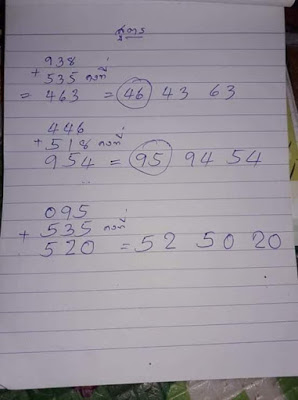 สูตร
938
+ 535 คงที่
= 463 = 46 43 63
446
+ 518 คงที่
954 = 95 94 54
095
+ 535 คงที่
520 = 52 50 20